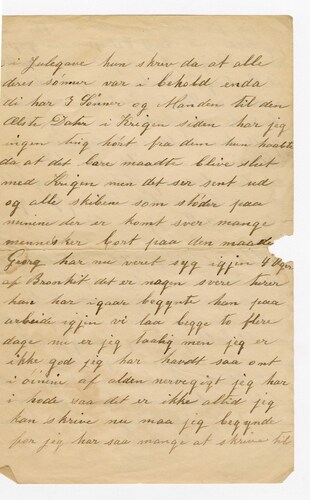 i Julegave hun skrev da at alle
deres sønner var i behold enda
di har 3 Sønner og Manden til den
Ælste Dater i Krigen siden har jeg
ingen ting hørt fra dem hun haabte
da at det bare maadte blive slut
med Krigen men det ser sent ud
og alle skibene som støder paa
minene der er komt svær mange
mennesker bort paa den maade
Georg har nu veret syg igjen 4 Uger
af Bronkit det er nogen svere turer
han har igaar begynte han paa
arbeide igjen vi laa begge to flere
dage nu er jeg taalig men jeg er
ikke god jeg har havdt saa ont
i af alden jeg har
i hode vaa det er ikke altid jeg
kan skrive nu maa jeg begynde
for jeg har saa mange at skrive til